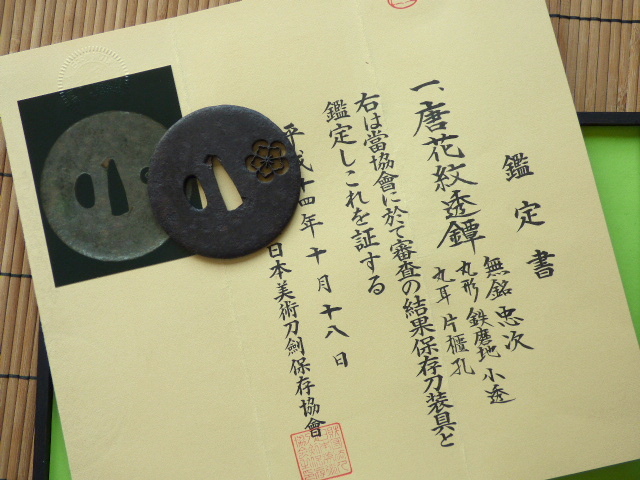 鑑定書
一、唐花紋透鐔 無銘 忠次
丸形 鉄磨地 小透
丸耳 片櫃孔
右は當協會に於て審査の結果保存刀装具と
鑑定しこれを証する
平成十四年十月十八日
日本美術刀劍保存協會